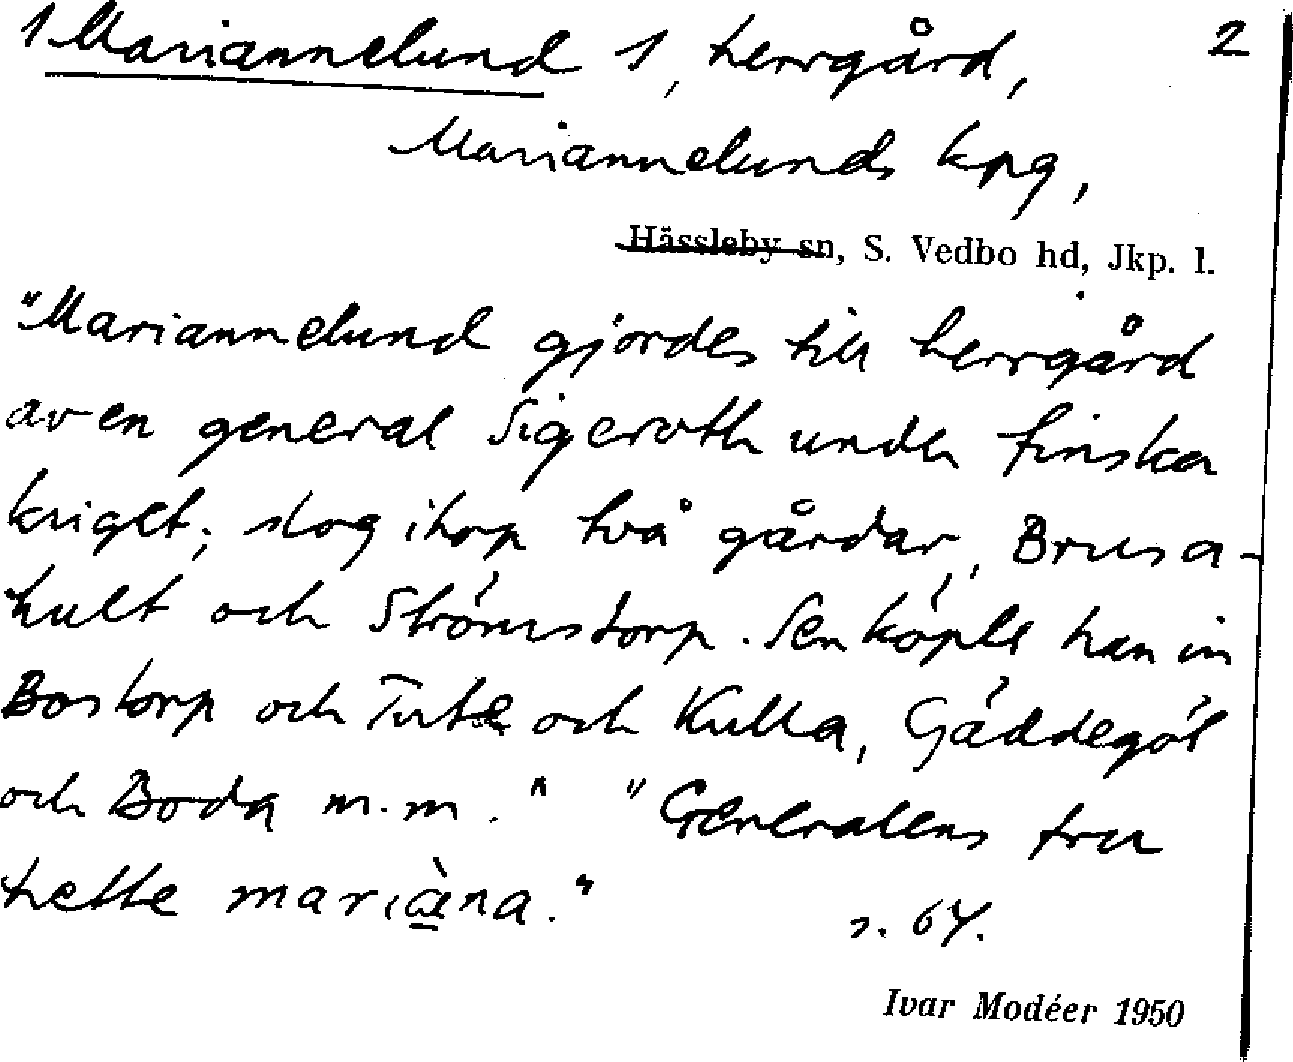 1 Mariannelund 1, herrgård, 2
Mariannelunds kpg,
Hässleby sn, S. Vedbo hd, Jkp. l.
"Mariannelund gjordes till herrgård
av en general Sigeroth under finska
kriget; slog ihop två gårdar, Brusa-
hult och Strömstorp. Sen köpte han in
Bostorp och och Kulla, Gäddegöl
och Boda m.m." "Generalens fru
hette mariàna." s. 64.
Ivar Modéer 1950